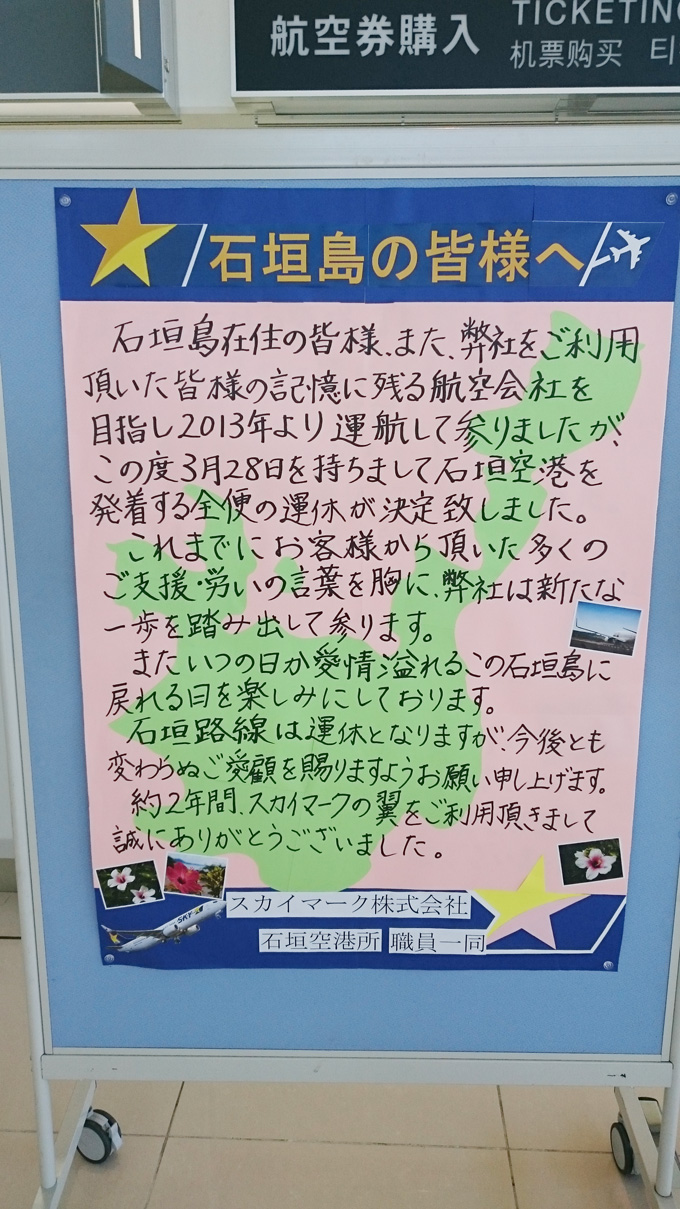 航空券購入
TICKETING
机票购买 티
石垣島の皆様へ
石垣島在住の皆様、また、弊社をご利用
頂いた皆様の記憶に残る航空会社を
目指し2013年より運航して参りましたが、
この度3月28日を持ちまして石垣空港を
発着する全便の運休が決定致しました。
これまでにお客様から頂いた多くの
ご支援・労いの言葉を胸に、弊社は新たな
一歩を踏み出して参ります。
またいつの日か愛情溢れるこの石垣島に
戻れる日を楽しみにしております。
石垣路線は運休となりますが、今後とも
変わらぬご愛顧を賜りますようお願い申し上げます。
約2年間、スカイマークの翼をご利用頂きまして
誠にありがとうございました。
スカイマーク株式会社
石垣空港所 職員一同